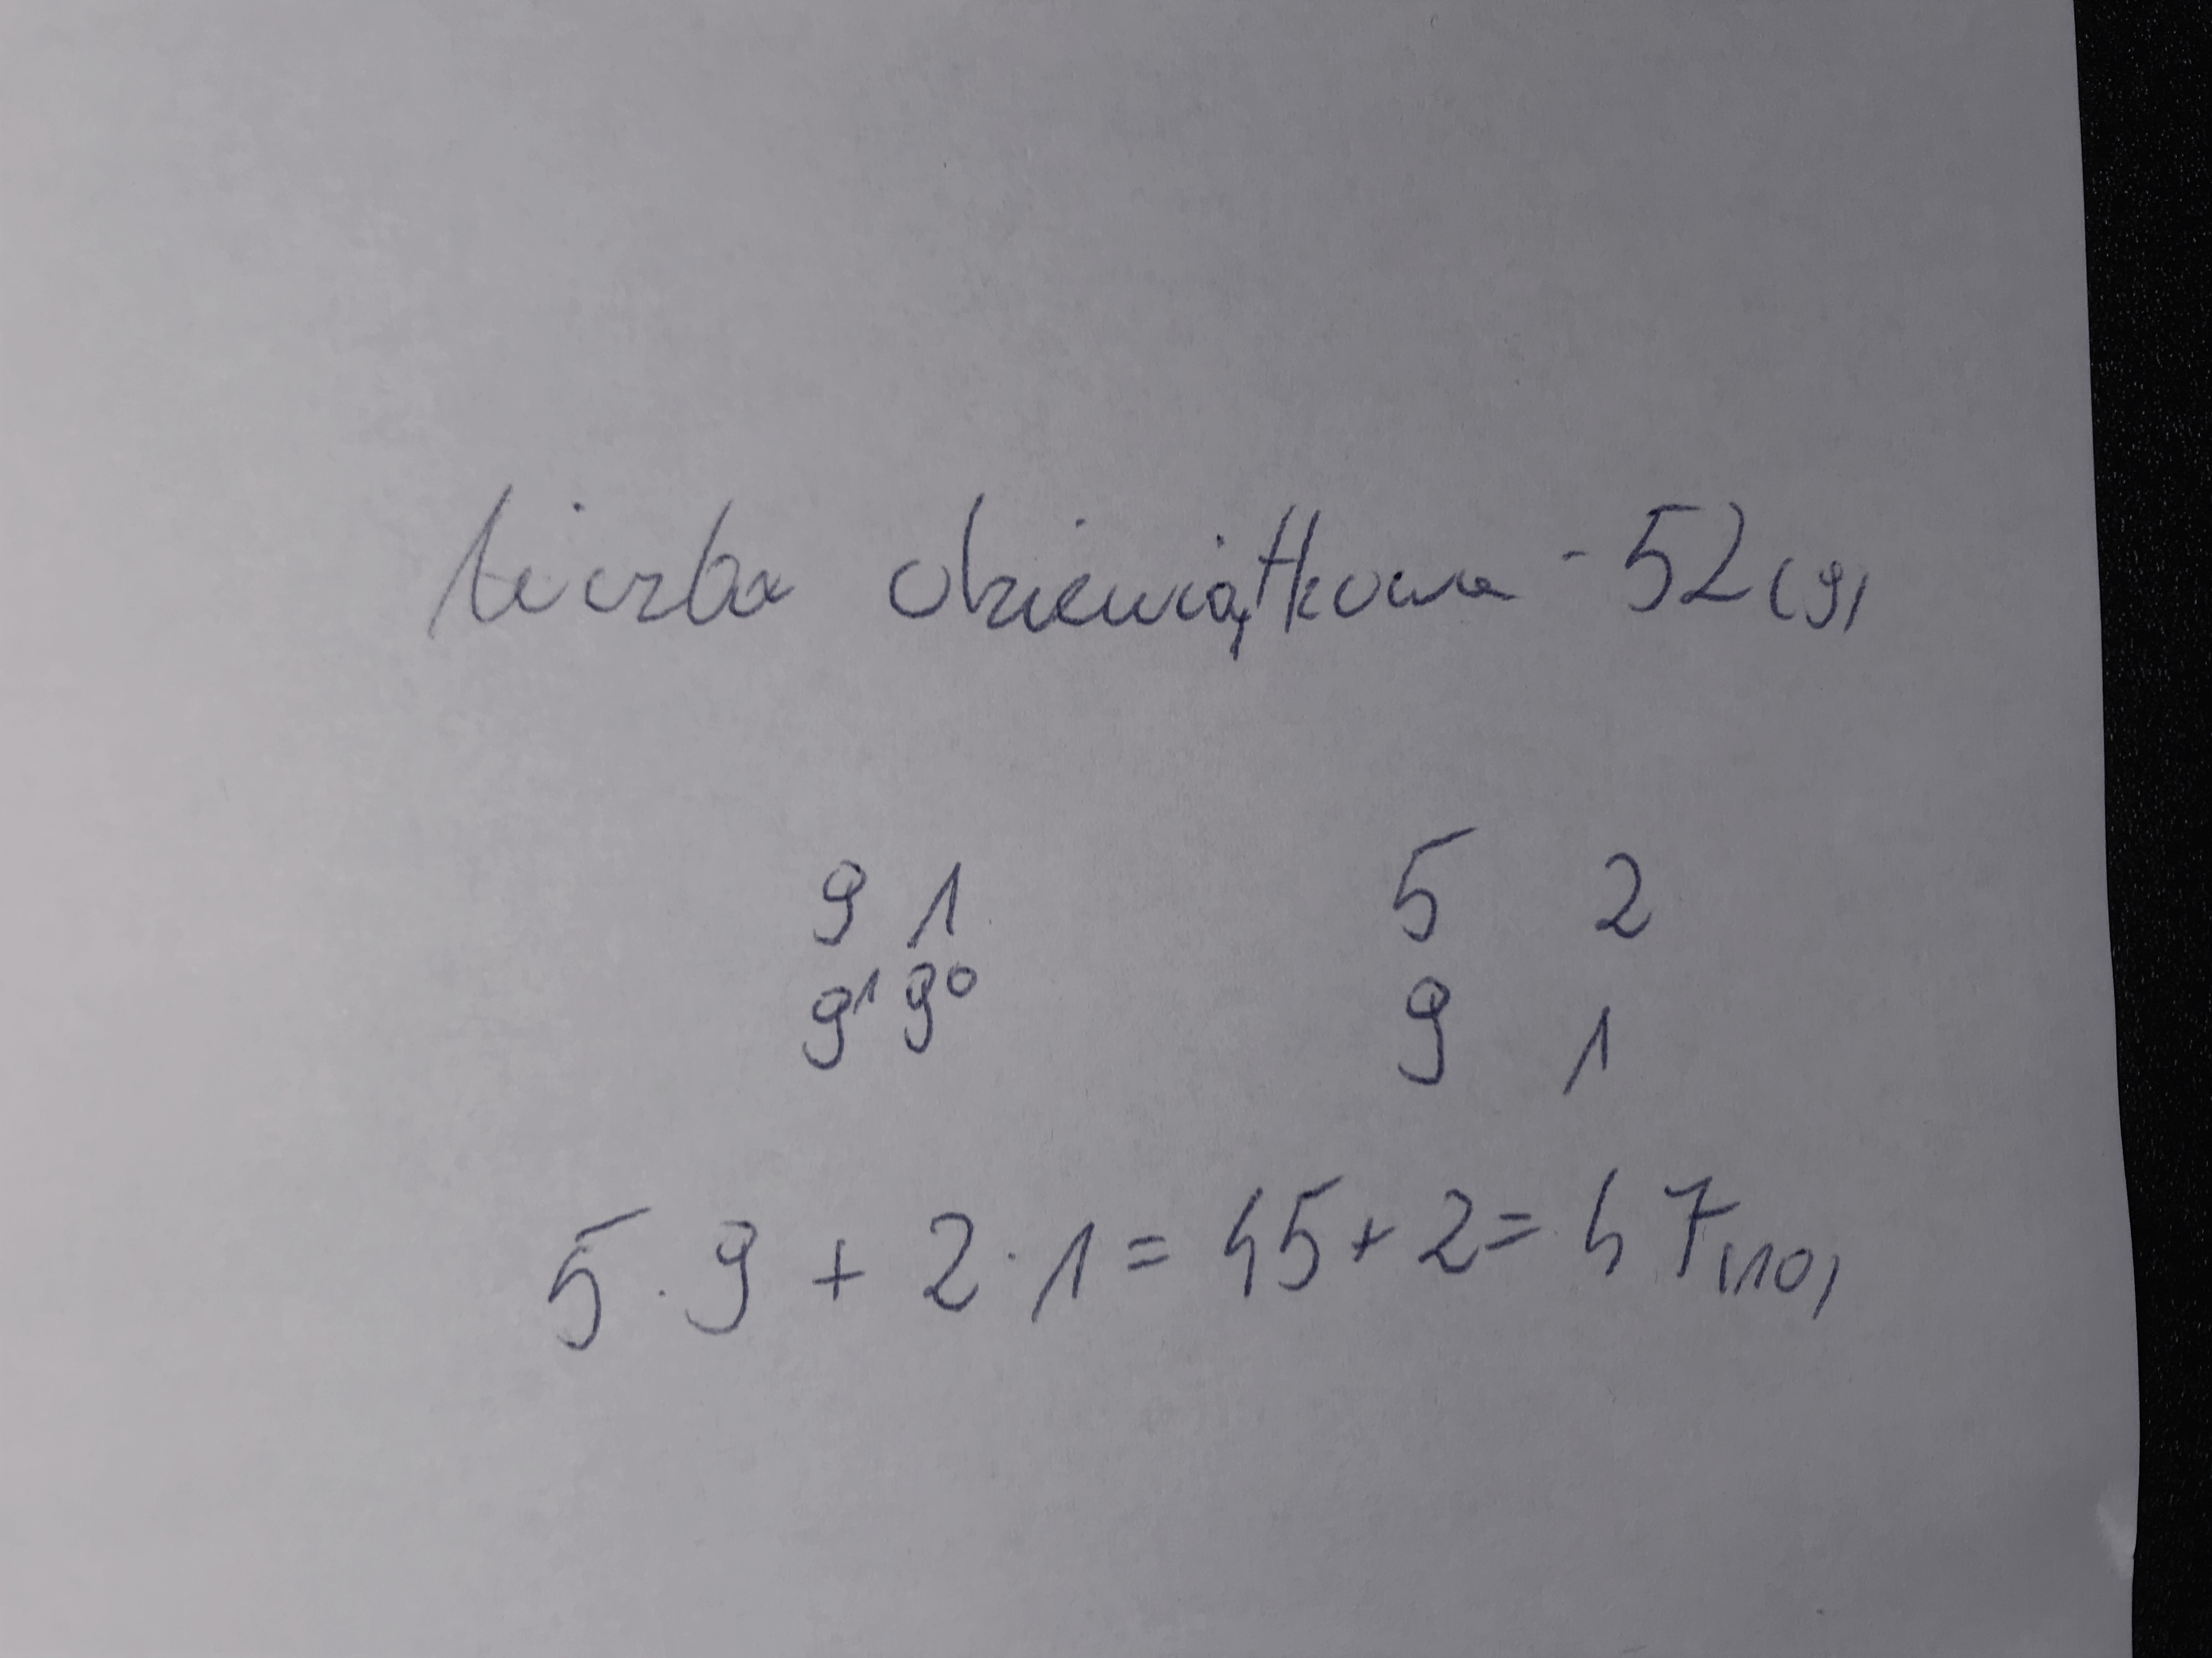 liczba dziewiątkowa - 52(9)
9 1 5 2
9¹ 9⁰ 9 1
5 · 9 + 2 · 1 = 45 + 2 = 47(10)